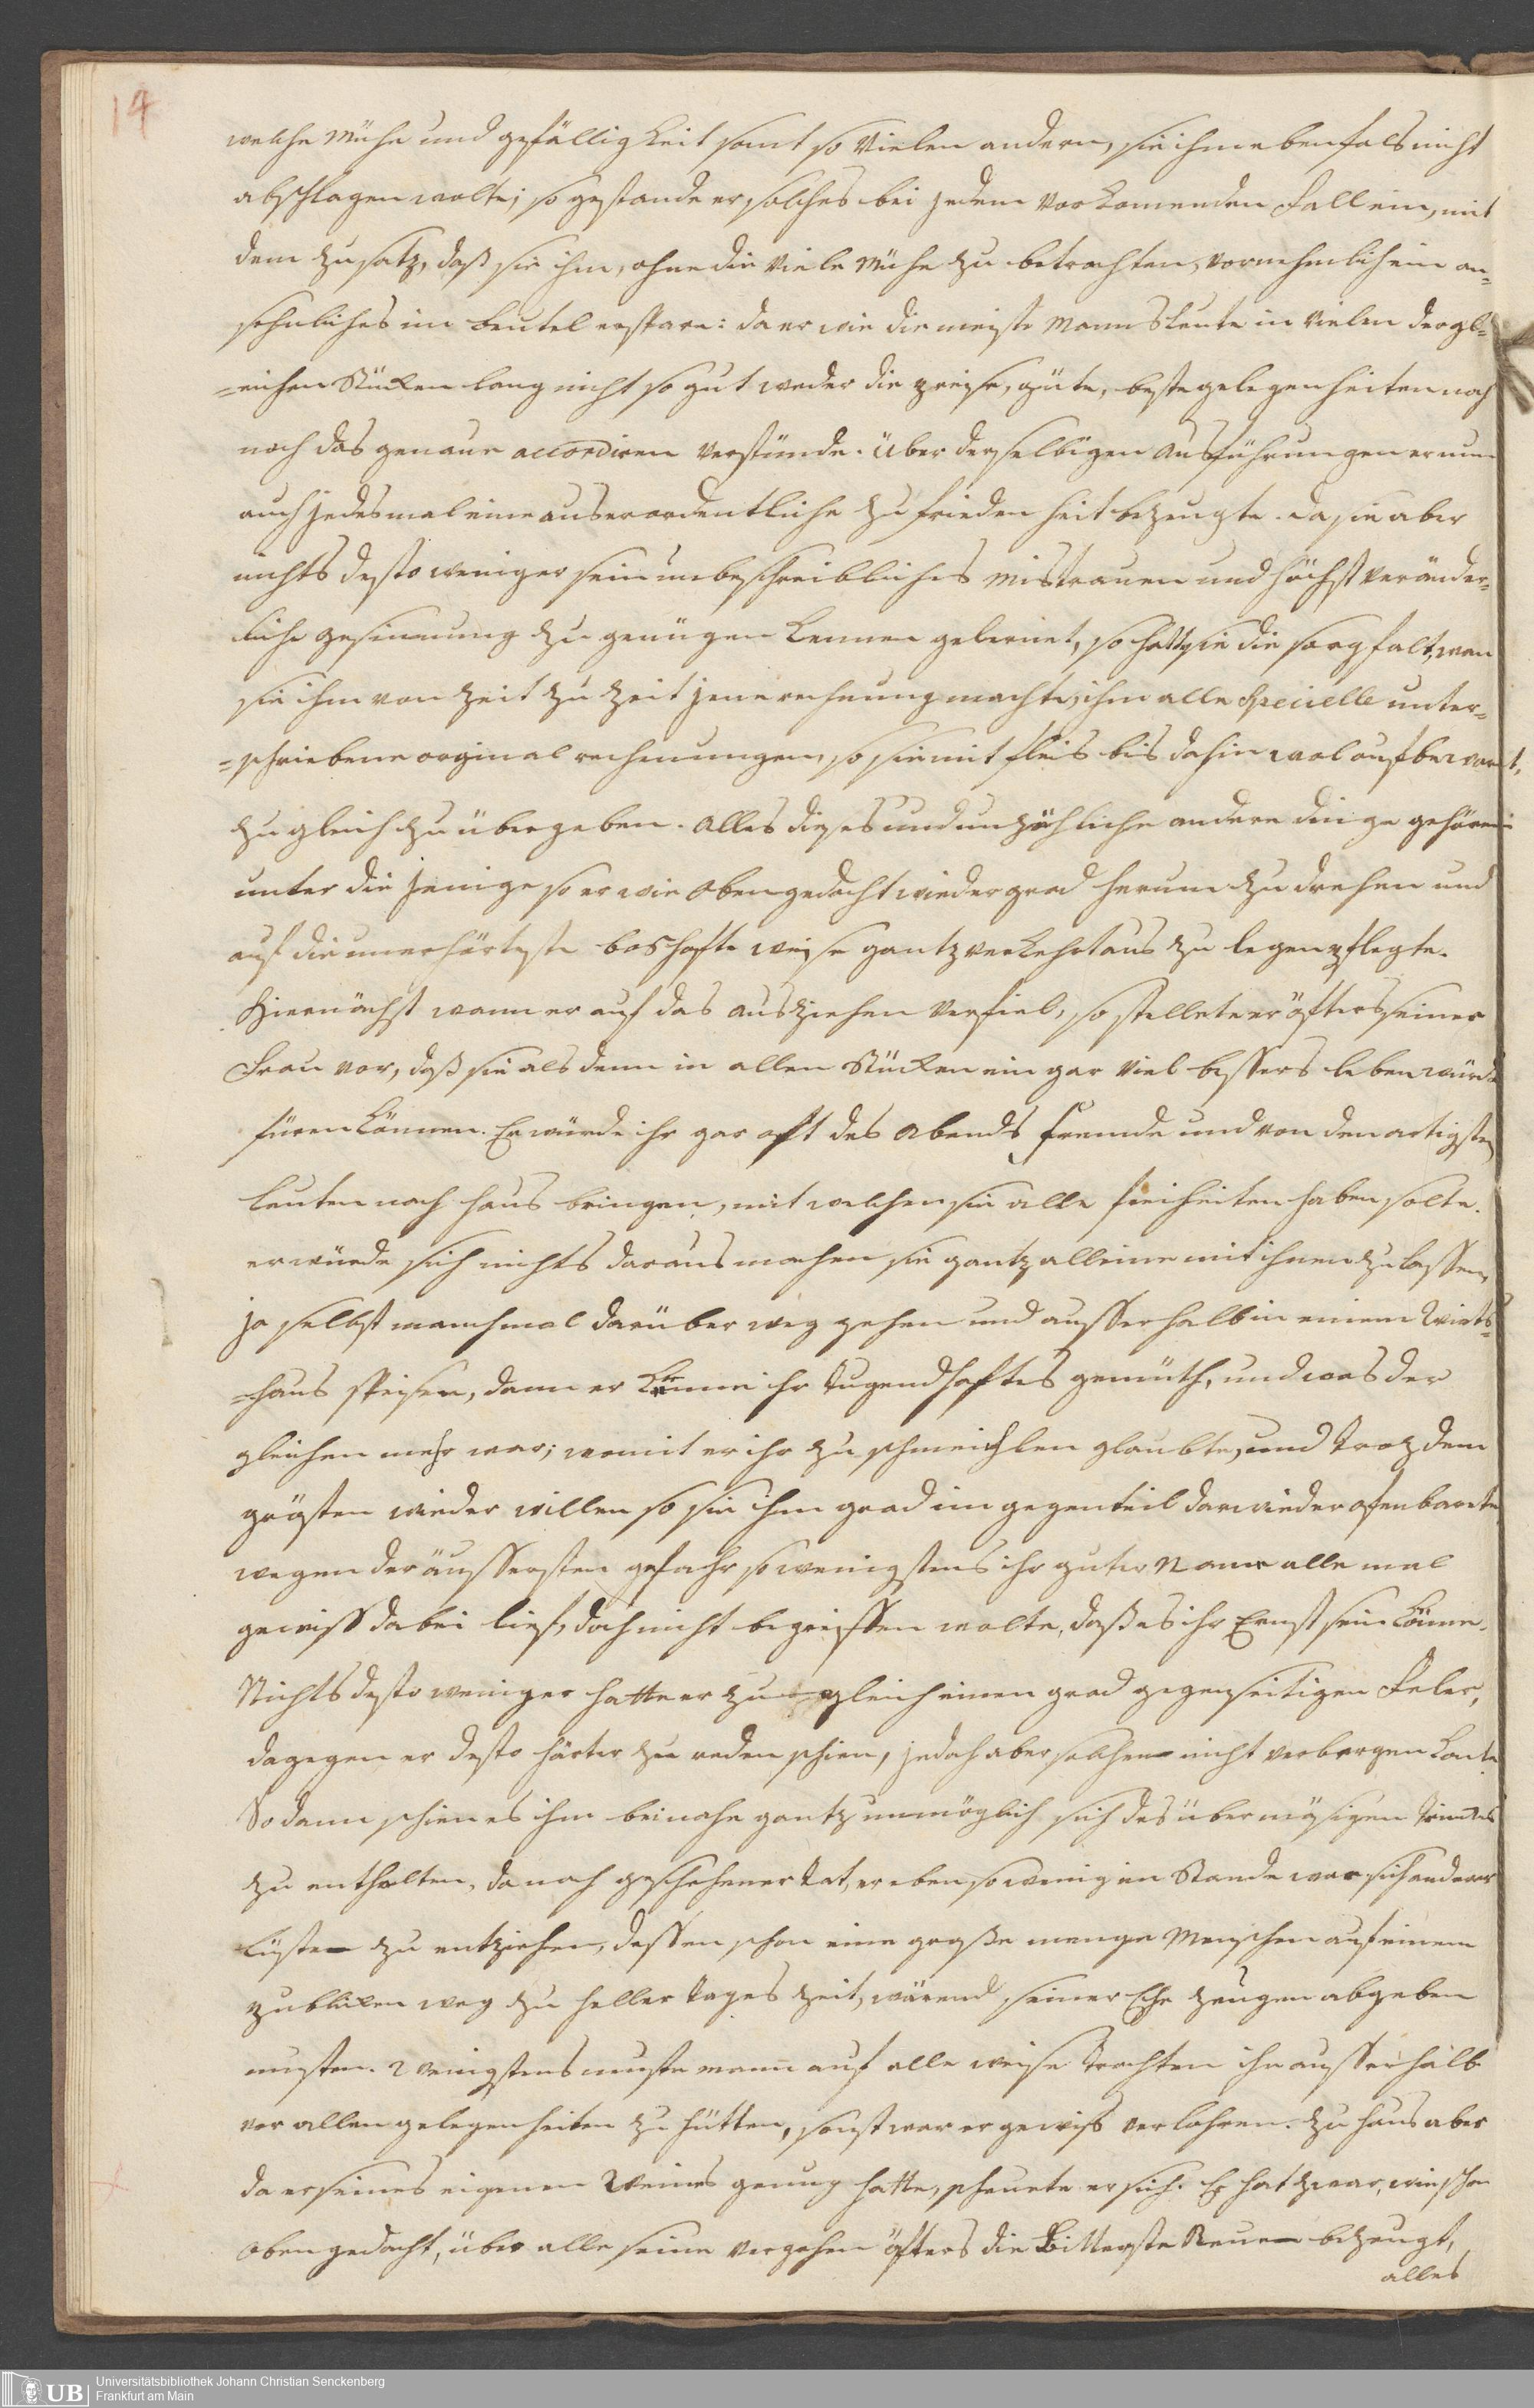 14
welche Mühe und gefälligkeit samt so vielen andern, sie ihm ebenfals nicht
abschlagen wolte; so gestande er solches bei jedem vorkomenden Fall ein, mit
dem zusatz, daß sie ihm, ohne die viele Mühe zu betrachten, vornehmlich ein an=
sehnliches im beutel erspare: da er wie die meiste Mannsleute in vielen dergl=
=eichen Stücken lang nicht so gut weder die preise, güte, beste gelegenheiten noch
noch das genaue accordiren verstünde. Über derselbigen Ausführungen er nun
auch jedesmal eine auserordentliche zufriedenheit bezeugte. da sie aber
nichts desto weniger sein unbeschreibliches mistrauen und höchst veränder=
liche gesinnung zu genügen kennen gelernet, so hatte sie die sorgfalt, wan
sie ihm von zeit zu zeit jene rechnung machte, ihm alle specielle unter=
=schriebene orginal rechnungen, so sie mit fleis bis dahin wol aufbewart,
zugleich zu übergeben. Alles dieses und unzähliche andere dinge gehören
unter die jenige so er wie oben gedacht wieder grad herum zu drehen und
auf die unerhörteste boshafte weise gantz verkehrt aus zu legen pflegte.
Hiernächst wann er auf das ausziehen verfiel, so stellete er öfters seiner
Frau vor, daß sie als denn in allen Stücken ein gar viel bessers leben würde
füren können. Er würde ihr gar oft des Abends fremde und von den artigsten
leuten nach haus bringen, mit welchen sie alle freiheiten haben solte.
er würde sich nichts daraus machen sie gantz alleine mit ihnen zu lassen,
ja selbst manchmal darüber weg gehen und ausserhalb in einem Wirts=
=haus speisen, dann er kenne ihr tugendhaftes gemüth, und was der
gleichen mehr war; womit er ihr zu schmeichlen glaubte, und troz dem
grösten wiederwillen so sie ihm grad im gegenteil darwieder ofenbarte
wegen der äussersten gefahr so wenigstens ihr guter Name alle mal
gewiss dabei lief, doch nicht begreiffen wolte, daß es ihr Ernst sein könne.
Nichts desto weniger hatte er zugleich einen grad gegenseitigen Feler,
dagegen er desto härter zu reden schien, jedoch aber solchen nicht verbergen konte.
So dann schien es ihm beinahe gantz unmöglich sich des übermäsigen trinckes
zu enthalten, da nach geschehener tat, er eben so wenig im Stande war sich anderer
Lüsten zu entziehen, dessen schon eine große menge Menschen auf einem
publicken weg zu heller tages zeit, wärend seiner Ehe zeugen abgeben
musten. Wenigstens muste mann auf alle weise trachten ihn ausserhalb
vor allen gelegenheiten zu hütten, sonst war er gewiß verlohren. zu haus aber
da er seines eigenen Weines genug hatte, scheuete er sich. Er hat zwar, wie schon
oben gedacht, über alle seine vergehen öfters die Bitterste Reue bezeugt,
alles
UB Universitätsbibliothek Johann Christian Senckenberg
Frankfurt am Main